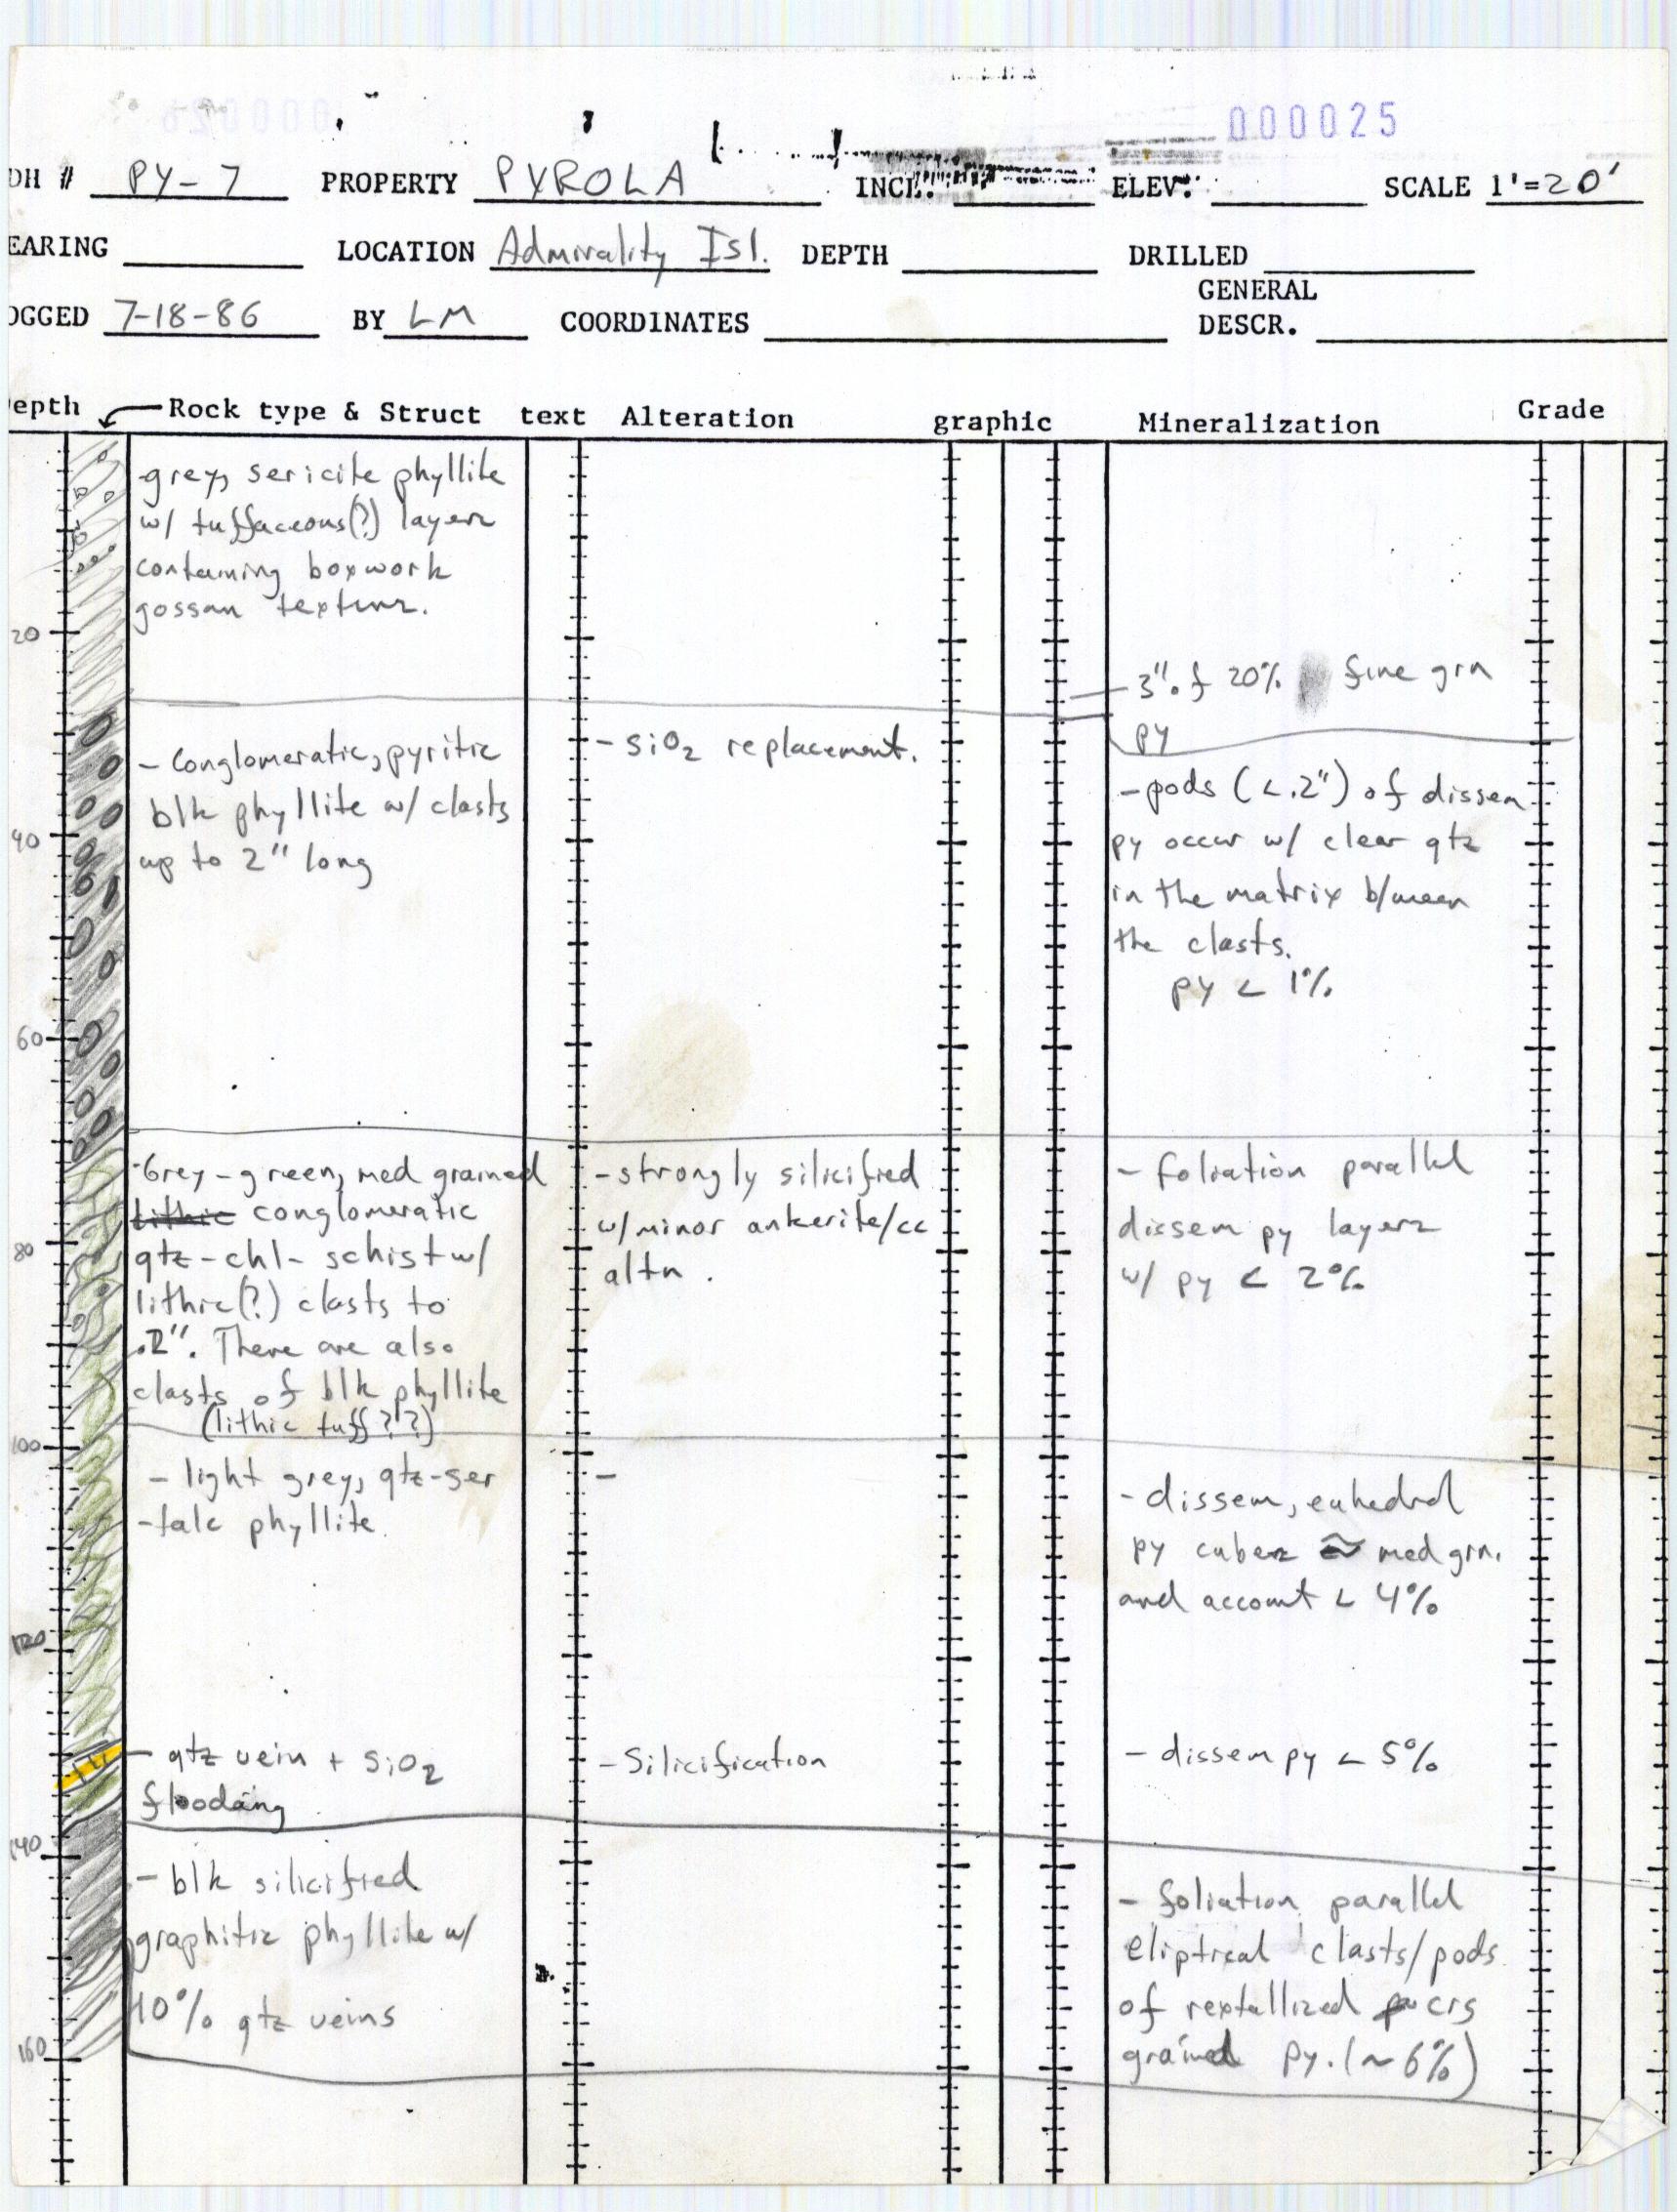 000025
DH # PY-7 PROPERTY PYROLA INCL. ELEV. SCALE 1'=20'
EARING LOCATION Admirality Isl. DEPTH DRILLED
GENERAL
OGGED 7-18-86 BY LM COORDINATES DESCR.
epth Rock type & Struct text Alteration graphic Mineralization Grade
grey, sericite phyllite
w/ tuffaceous(?) layers
containing boxwork
gossan texture.
20
- 3" of 20% fine grn
py
- Conglomeratic, pyritic
blk phyllite w/ clasts
up to 2" long
- SiO2 replacement.
- pods (<.2") of dissem
py occur w/ clear qtz
in the matrix b/ween
the clasts.
py < 1%
40
60
- Grey-green, med grained
lithic conglomeratic
qtz-chl- schist w/
lithic(?) clasts to
.2". There are also
clasts of blk phyllite
(lithic tuff??)
- strongly silicified
w/minor ankerite/cc
altn.
- foliation parallel
dissem py layers
w/ py < 2%
80
100
- light grey, qtz-ser
-talc phyllite.
-
- dissem, euhedral
py cubes ≈ med grn.
and account < 4%
120
- qtz vein + SiO2
flooding
- Silicification
- dissem py < 5%
140
- blk silicified
graphitic phyllite w/
10% qtz veins
- foliation parallel
eliptical clasts/pods
of rextallized crs
grained py. (~6%)
160